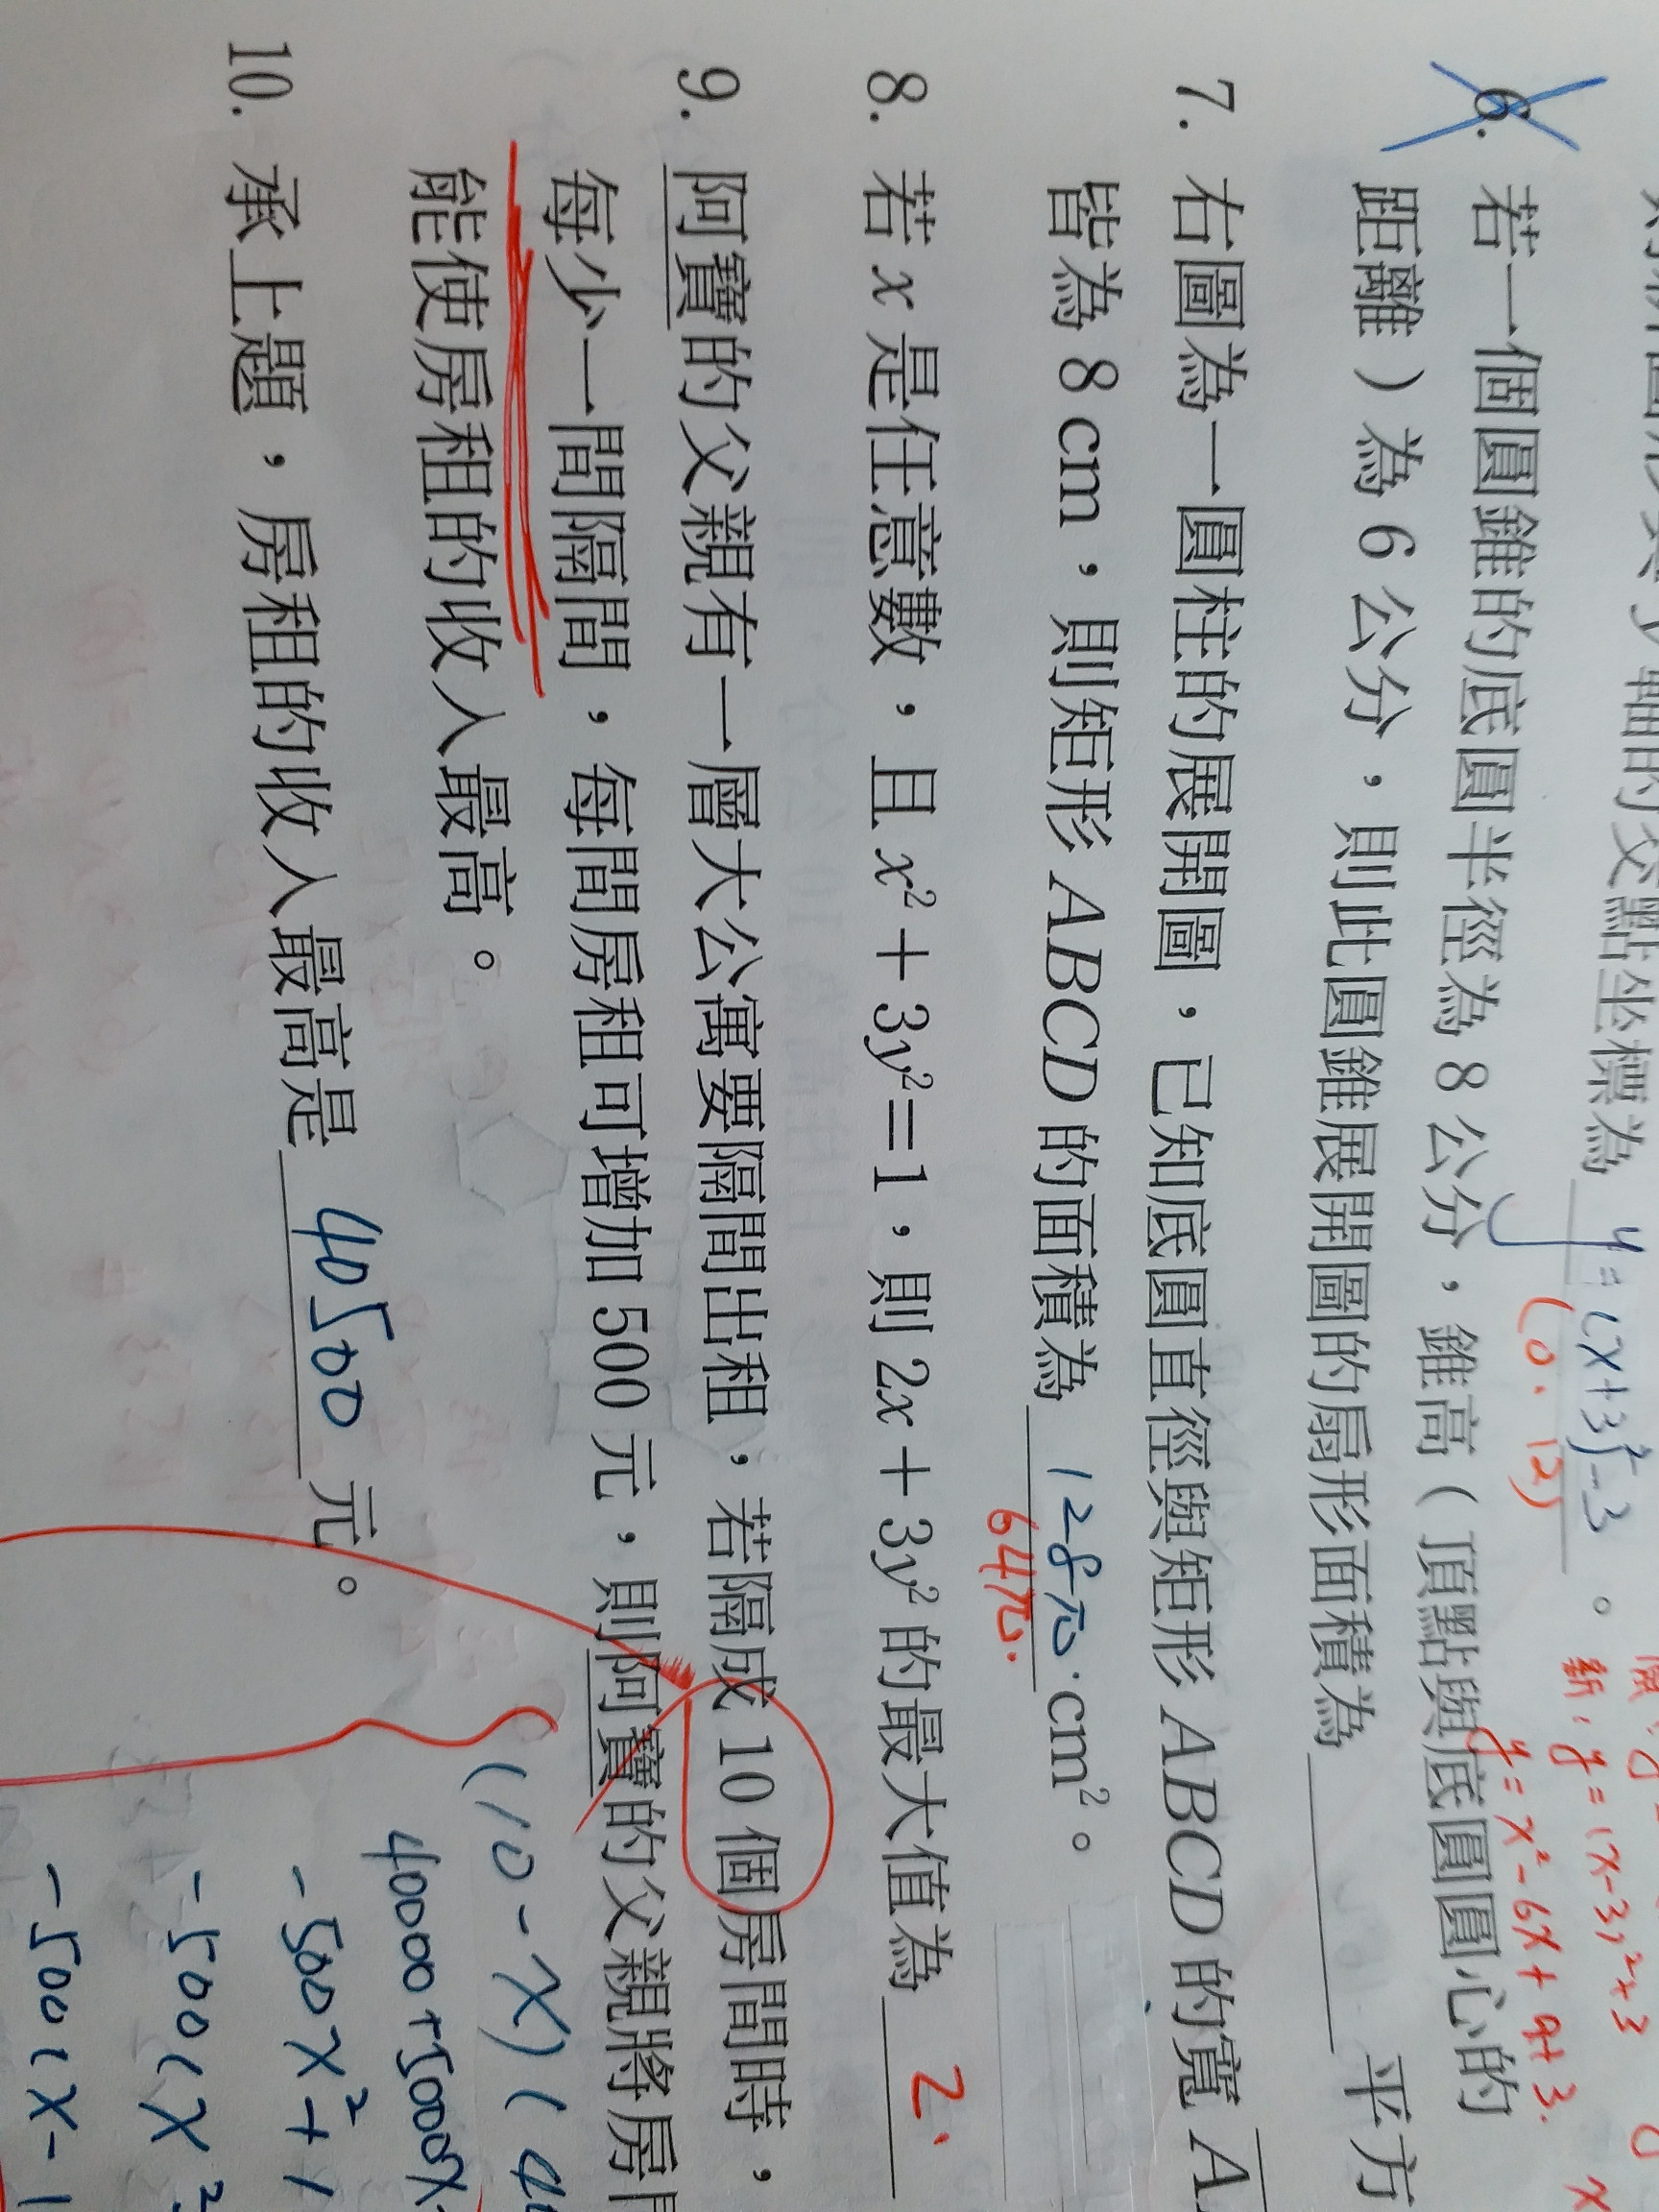 軸的交點坐標為 y=(x+3)²-3 。
(0.12)
新:y=(x-3)²+3
y=x²-6x+9+3.
6. 若一個圓錐的底圓半徑為 8 公分,錐高(頂點與底圓圓心的
距離)為 6 公分,則此圓錐展開圖的扇形面積為 平方
7. 右圖為一圓柱的展開圖,已知底圓直徑與矩形 ABCD 的寬
皆為 8 cm,則矩形 ABCD 的面積為 128π cm²。
64π.
8. 若 x 是任意數,且 x²+3y²=1,則 2x+3y² 的最大值為 2.
9. 阿寶的父親有一層大公寓要隔間出租,若隔成 10 個房間時,
每少一間隔間,每間房租可增加 500 元,則阿寶的父親將房
能使房租的收入最高。
10. 承上題,房租的收入最高是 40500 元。
(10-x)(
40000+5000x
-500x²+1
-500(x²
-500(x-1